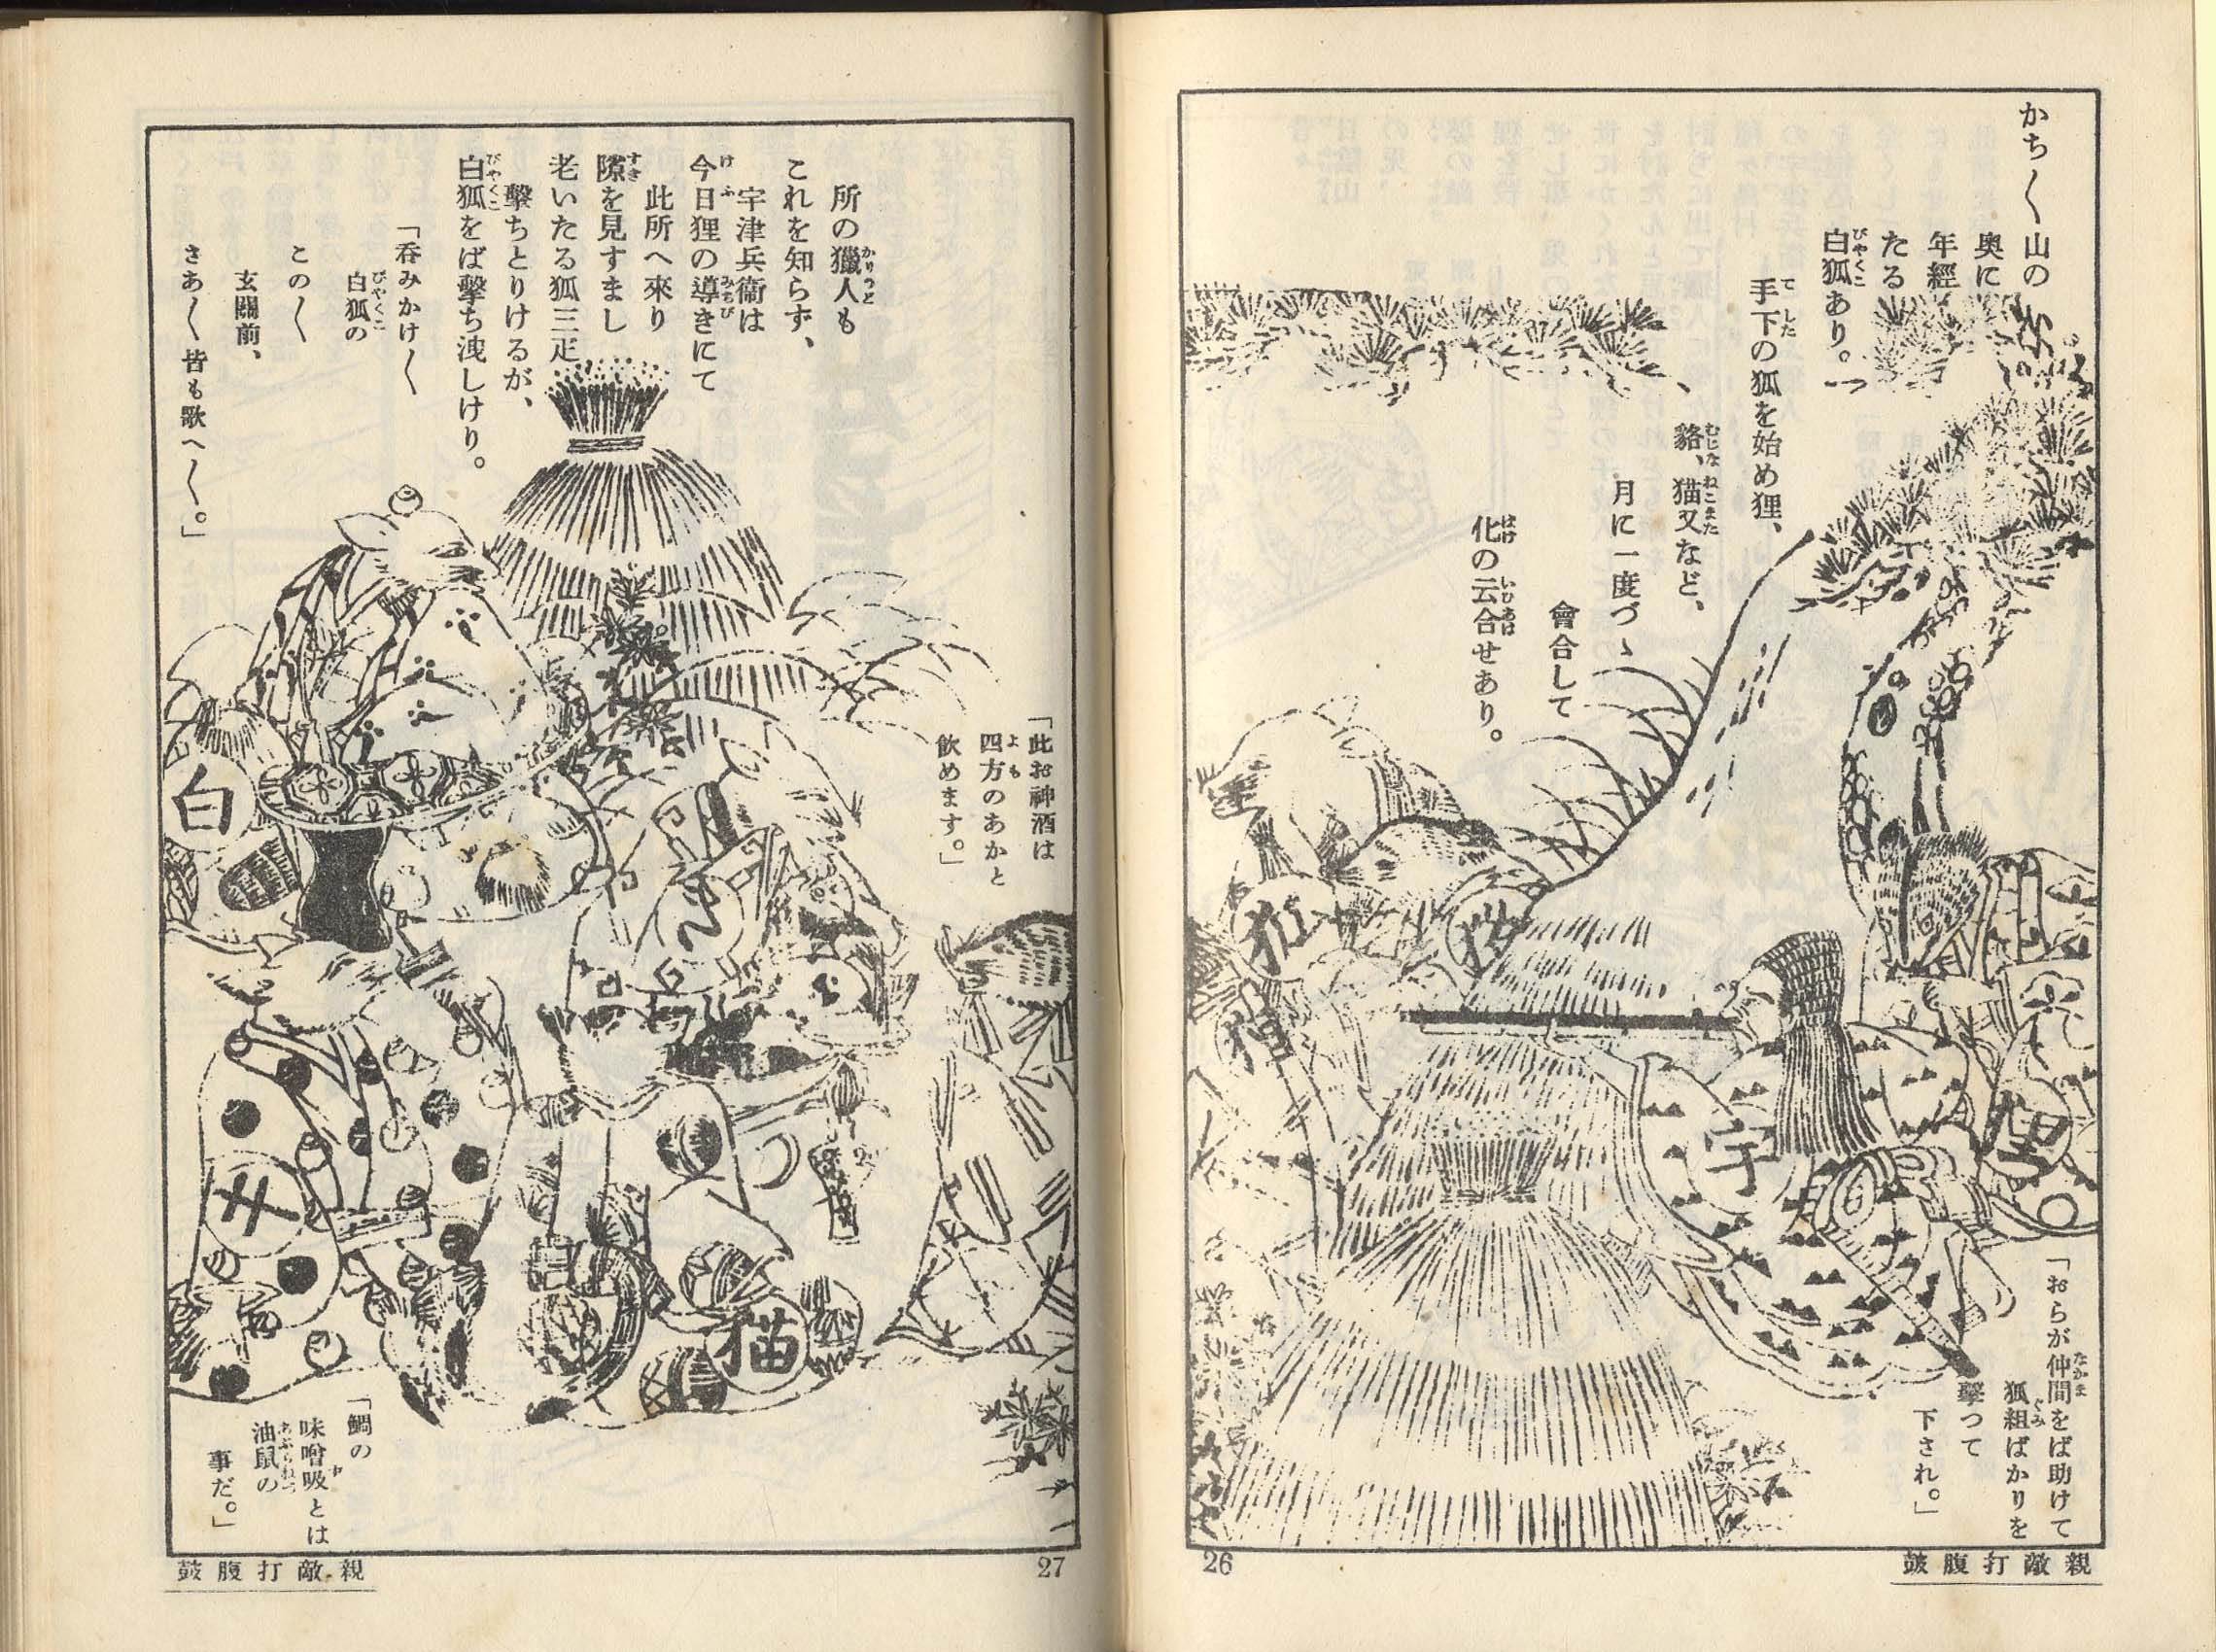 かち〳〵山の
奥に
年經
たる
白狐あり。
手下の狐を始め狸、
貉、猫又など、
月に一度づゝ
會合して
化の云合せあり。
狐
猫
狸
宇
狸
「おらが仲間をば助けて
狐組ばかりを
擊つて
下され。」
26
親敵打腹鼓
所の獵人も
これを知らず、
宇津兵衞は
今日狸の導きにて
此所へ來り
隙を見すまし
老いたる狐三疋
擊ちとりけるが、
白狐をば擊ち洩しけり。
「呑みかけ〳〵
白狐の
この〳〵
玄關前、
さあ〳〵皆も歌へ〳〵。」
「此お神酒は
四方のあかと
飲めます。」
白
猫
「鯛の
味噌吸とは
油鼠の
事だ。」
27
親敵打腹鼓